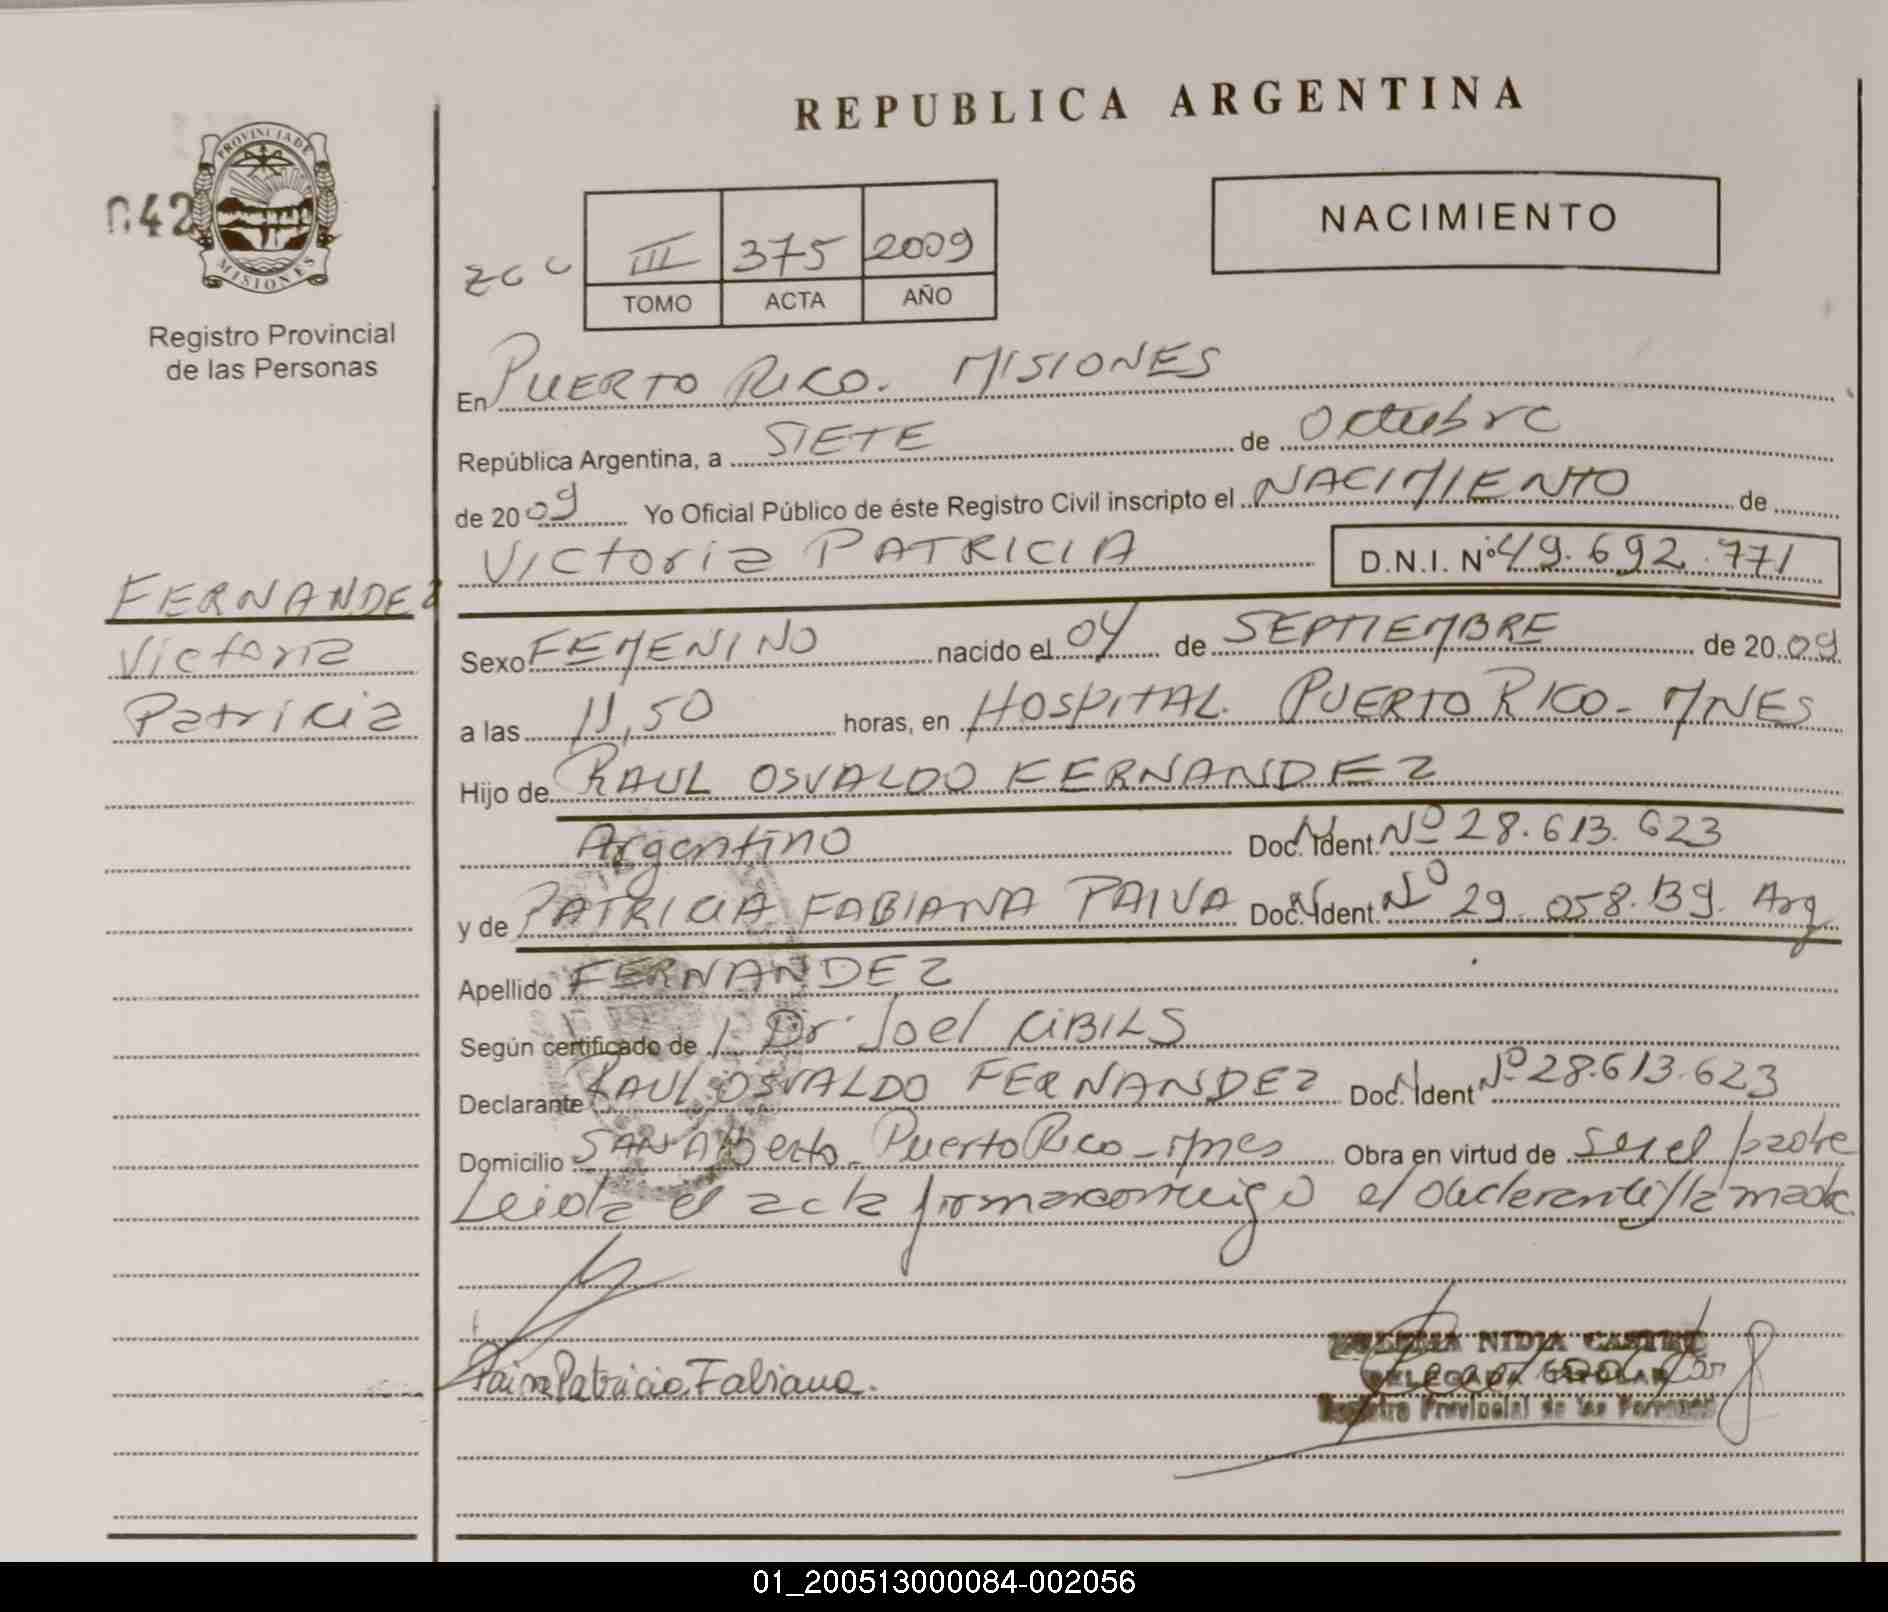 REPUBLICA ARGENTINA
PROVINCIA DE
MISIONES
042
Registro Provincial
de las Personas
NACIMIENTO
III 375 2009
TOMO ACTA AÑO
En PUERTO RICO. MISIONES
República Argentina, a SIETE de Octubre
de 2009 Yo Oficial Público de éste Registro Civil inscripto el NACIMIENTO de
Victoria PATRICIA D.N.I. Nº 49.692.771
FERNANDEZ
Victoria
Patricia
Sexo FEMENINO nacido el 04 de SEPTIEMBRE de 2009
a las 11,50 horas, en HOSPITAL. PUERTO RICO - MNES
Hijo de RAUL OSVALDO FERNANDEZ
Argentino Doc. Ident. Nº 28.613.623
y de PATRICIA FABIANA PAIVA Doc. Ident. Nº 29.058.139. Arg
Apellido FERNANDEZ
Según certificado de Dr. Joel CIBILS
Declarante RAUL OSVALDO FERNANDEZ Doc. Ident Nº 28.613.623
Domicilio SAN Alberto - Puerto Rico - mnes Obra en virtud de ser el padre
Leida el acta firman conmigo el declarante y la madre
Paiva Patricia Fabiana.
NIDIA
DELEGADA
Registro Provincial de las Personas
01_200513000084-002056